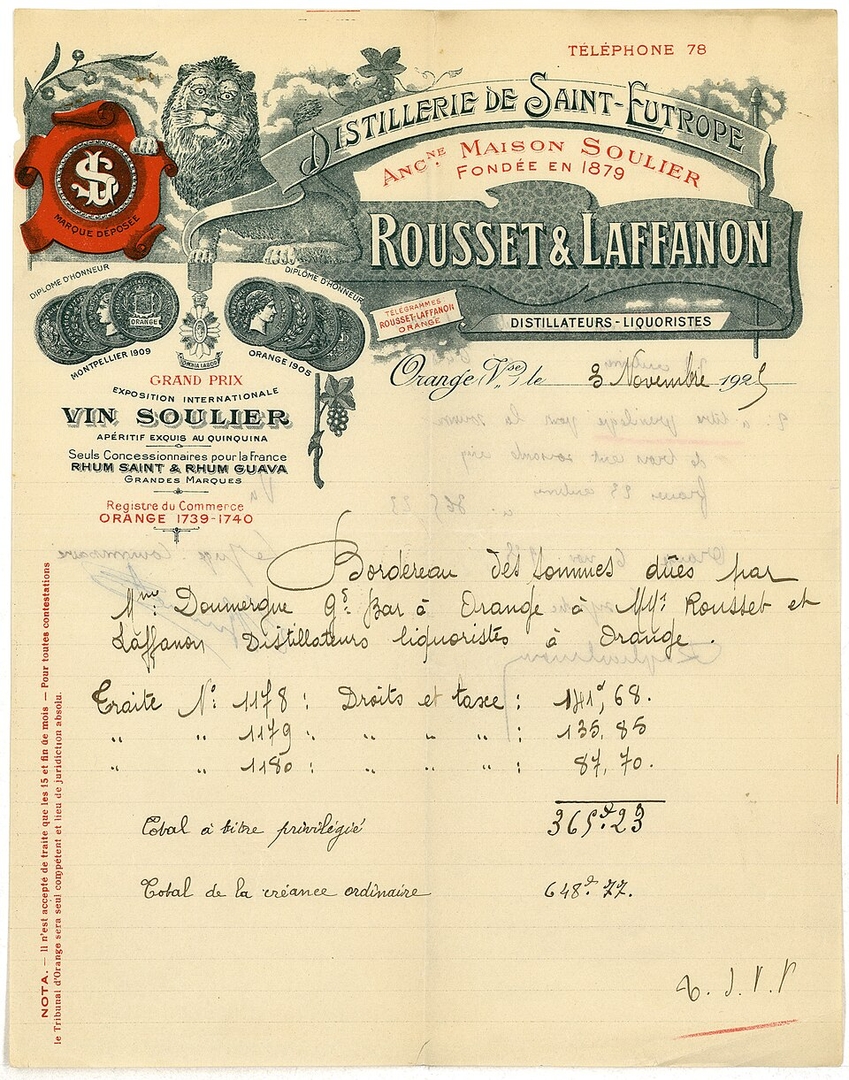 TÉLÉPHONE 78
DISTILLERIE DE SAINT-EUTROPE
ANCNE. MAISON SOULIER
FONDÉE EN 1879
SD
MARQUE DÉPOSÉE
ROUSSET & LAFFANON
TÉLÉGRAMMES
ROUSSET-LAFFANON
ORANGE
DISTILLATEURS - LIQUORISTES
DIPLOME D'HONNEUR
DIPLOME D'HONNEUR
ORANGE
MONTPELLIER 1909
ORANGE 1905
GRAND PRIX
EXPOSITION INTERNATIONALE
VIN SOULIER
APÉRITIF EXQUIS AU QUINQUINA
Seuls Concessionnaires pour la France
RHUM SAINT & RHUM GUAVA
GRANDES MARQUES
Registre du Commerce
ORANGE 1739-1740
Orange (Vse), le 3 Novembre 1925
Bordereau des sommes dûes par
Mme Doumergue Gd Bar à Orange à MM. Rousset et
Laffanon Distillateurs liquoristes à Orange.
Traite No: 1178 : Droits et taxe : 141f, 68.
" " 1179 : " " " : 135, 85
" " 1180 : " " " : 87, 70.
Total à titre privilégié 365f.23
Total de la créance ordinaire 648f 77.
NOTA. — Il n'est accepté de traite que les 15 et fin de mois — Pour toutes contestations
le Tribunal d'Orange sera seul compétent et lieu de juridiction absolu.